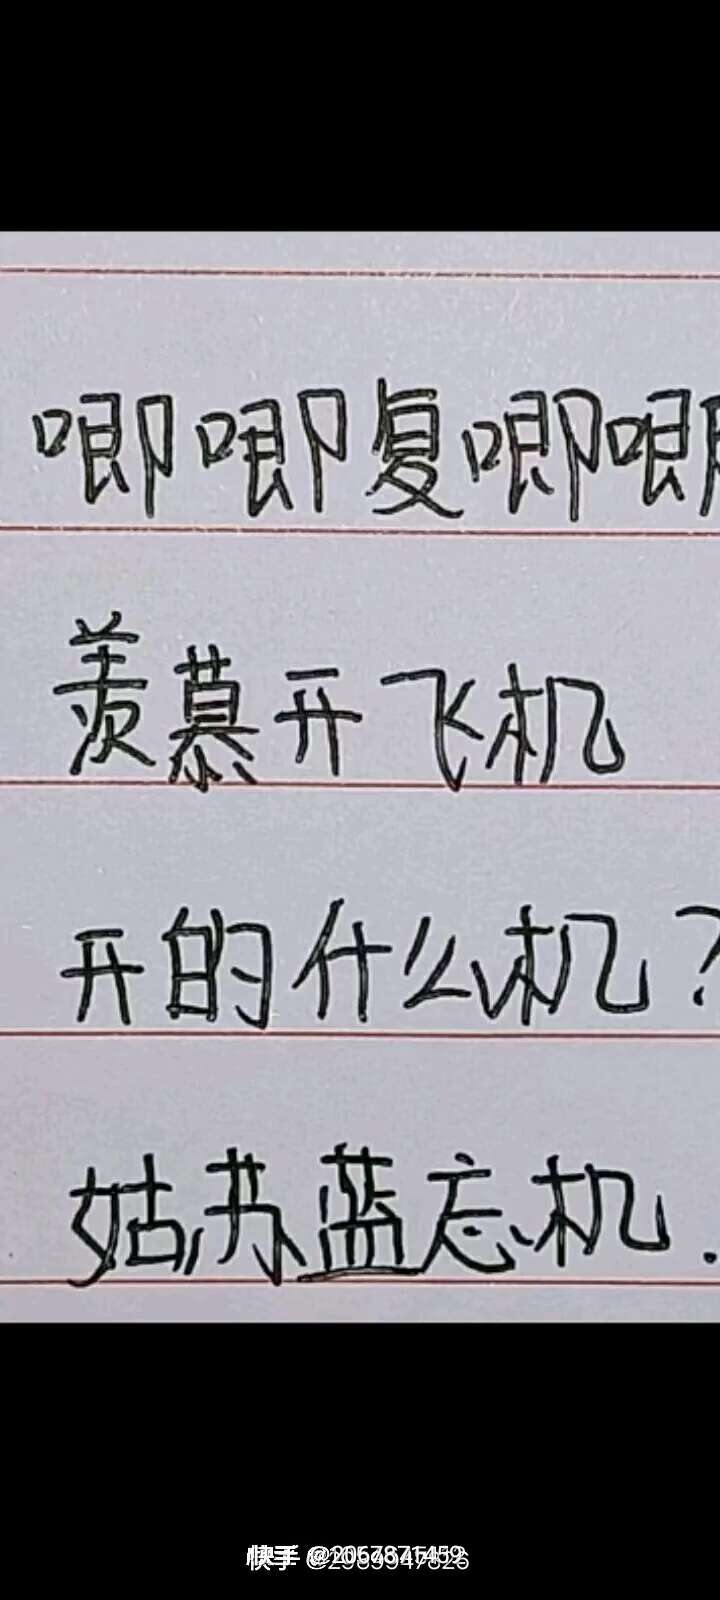 唧唧复唧唧
羡慕开飞机
开的什么机?
姑苏蓝忘机.
快手